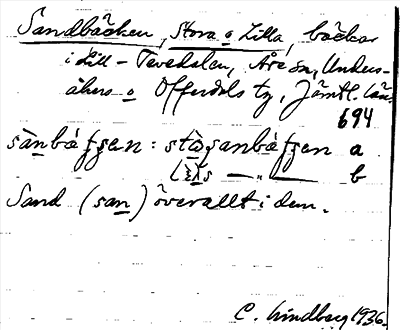 Sandbäcken, Stora o Lilla, bäckar
i Lill-Tevedalen, Åre sn, Unders-
åkers o Offerdals tg, Jämtl. län.
694
sànbáʃʃen: stoʃanbáʃʃen a
—„— b
Sand (san) överallt i den.
C. Lindberg 1936.